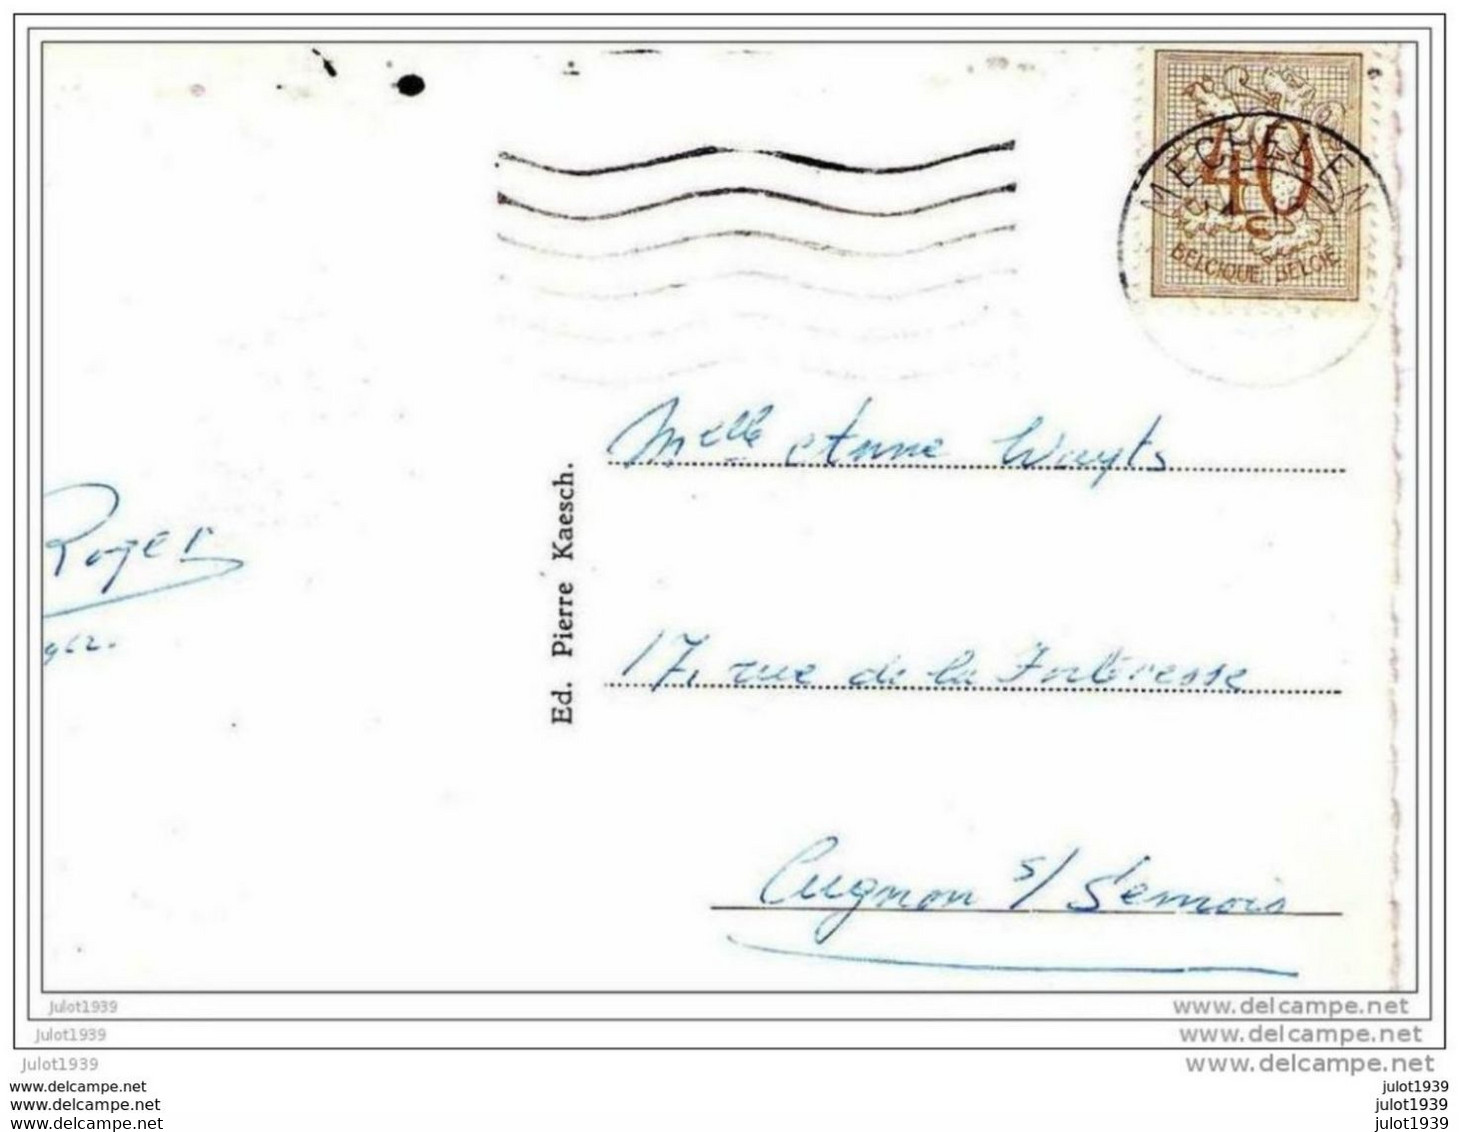 MECHELEN
40
BELGIQUE BELGIË
Melle Anne Wuyts
Ed. Pierre Kaesch.
Roger
962.
17, rue de la Forteresse
Cugnon s/ Semois
julot1939 www.delcampe.net
julot1939 www.delcampe.net
julot1939 www.delcampe.net
www.delcampe.net julot1939
www.delcampe.net julot1939
www.delcampe.net julot1939